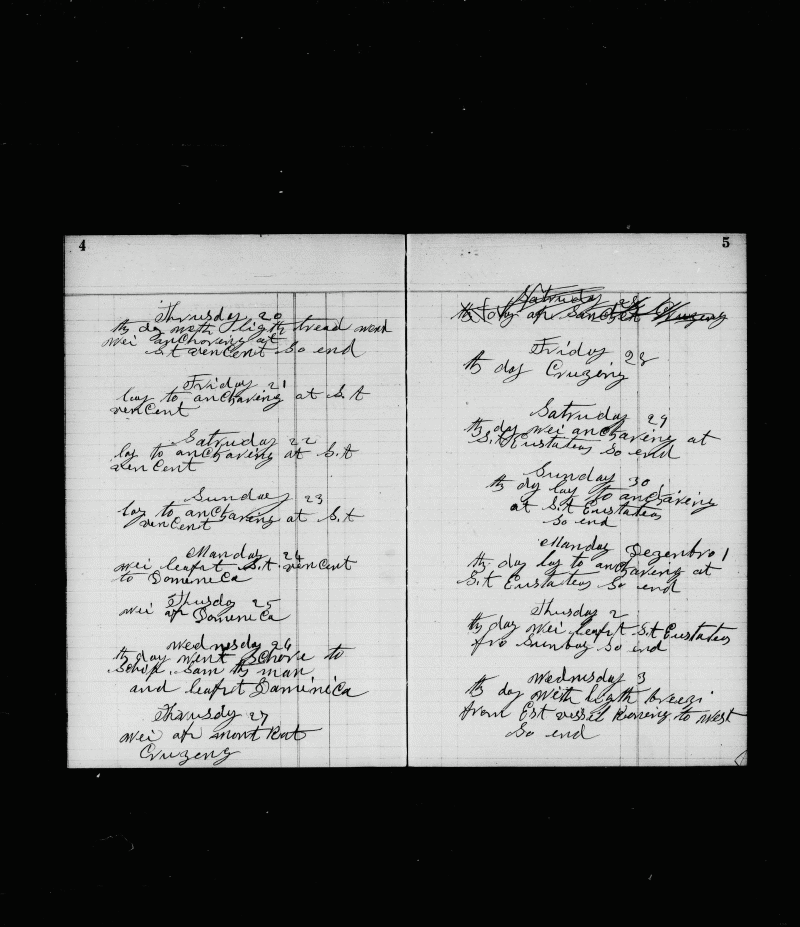 4
Thrusday 20
th day with ligth tread wend
wei anchoreng at
S.t vencent So end
Friday 21
lay to anchaving at S.t
vencent
Satruday 22
lay to anchaving at S.t
vencent
Sunday 23
lay to anchaving at S.t
vencent
Manday 24
wei leafut S.t vencent
to Domeneca
Thusday 25
wei af Domeneca
wednesday 26
th day went Schore to
Schip Sam th man
and leafut Damineca
Thrusday 27
wei af mont Rat
Cruzeng
5
Satruday 28
th day af
Friday 28
th day Cruzeng
Satruday 29
th day wei anchaving at
S.t Eustateas So end
Sunday 30
th day lay to anchaving
at S.t Eustateas
So end
Manday Dezenbro 1
th day lay to anchaving at
S.t Eustateas So end
Thusday 2
th day wei leafut S.t Eustateas
fro Sunbay So end
wednusday 3
th day with ligth breezi
from Est vessel Roneng to west
So end